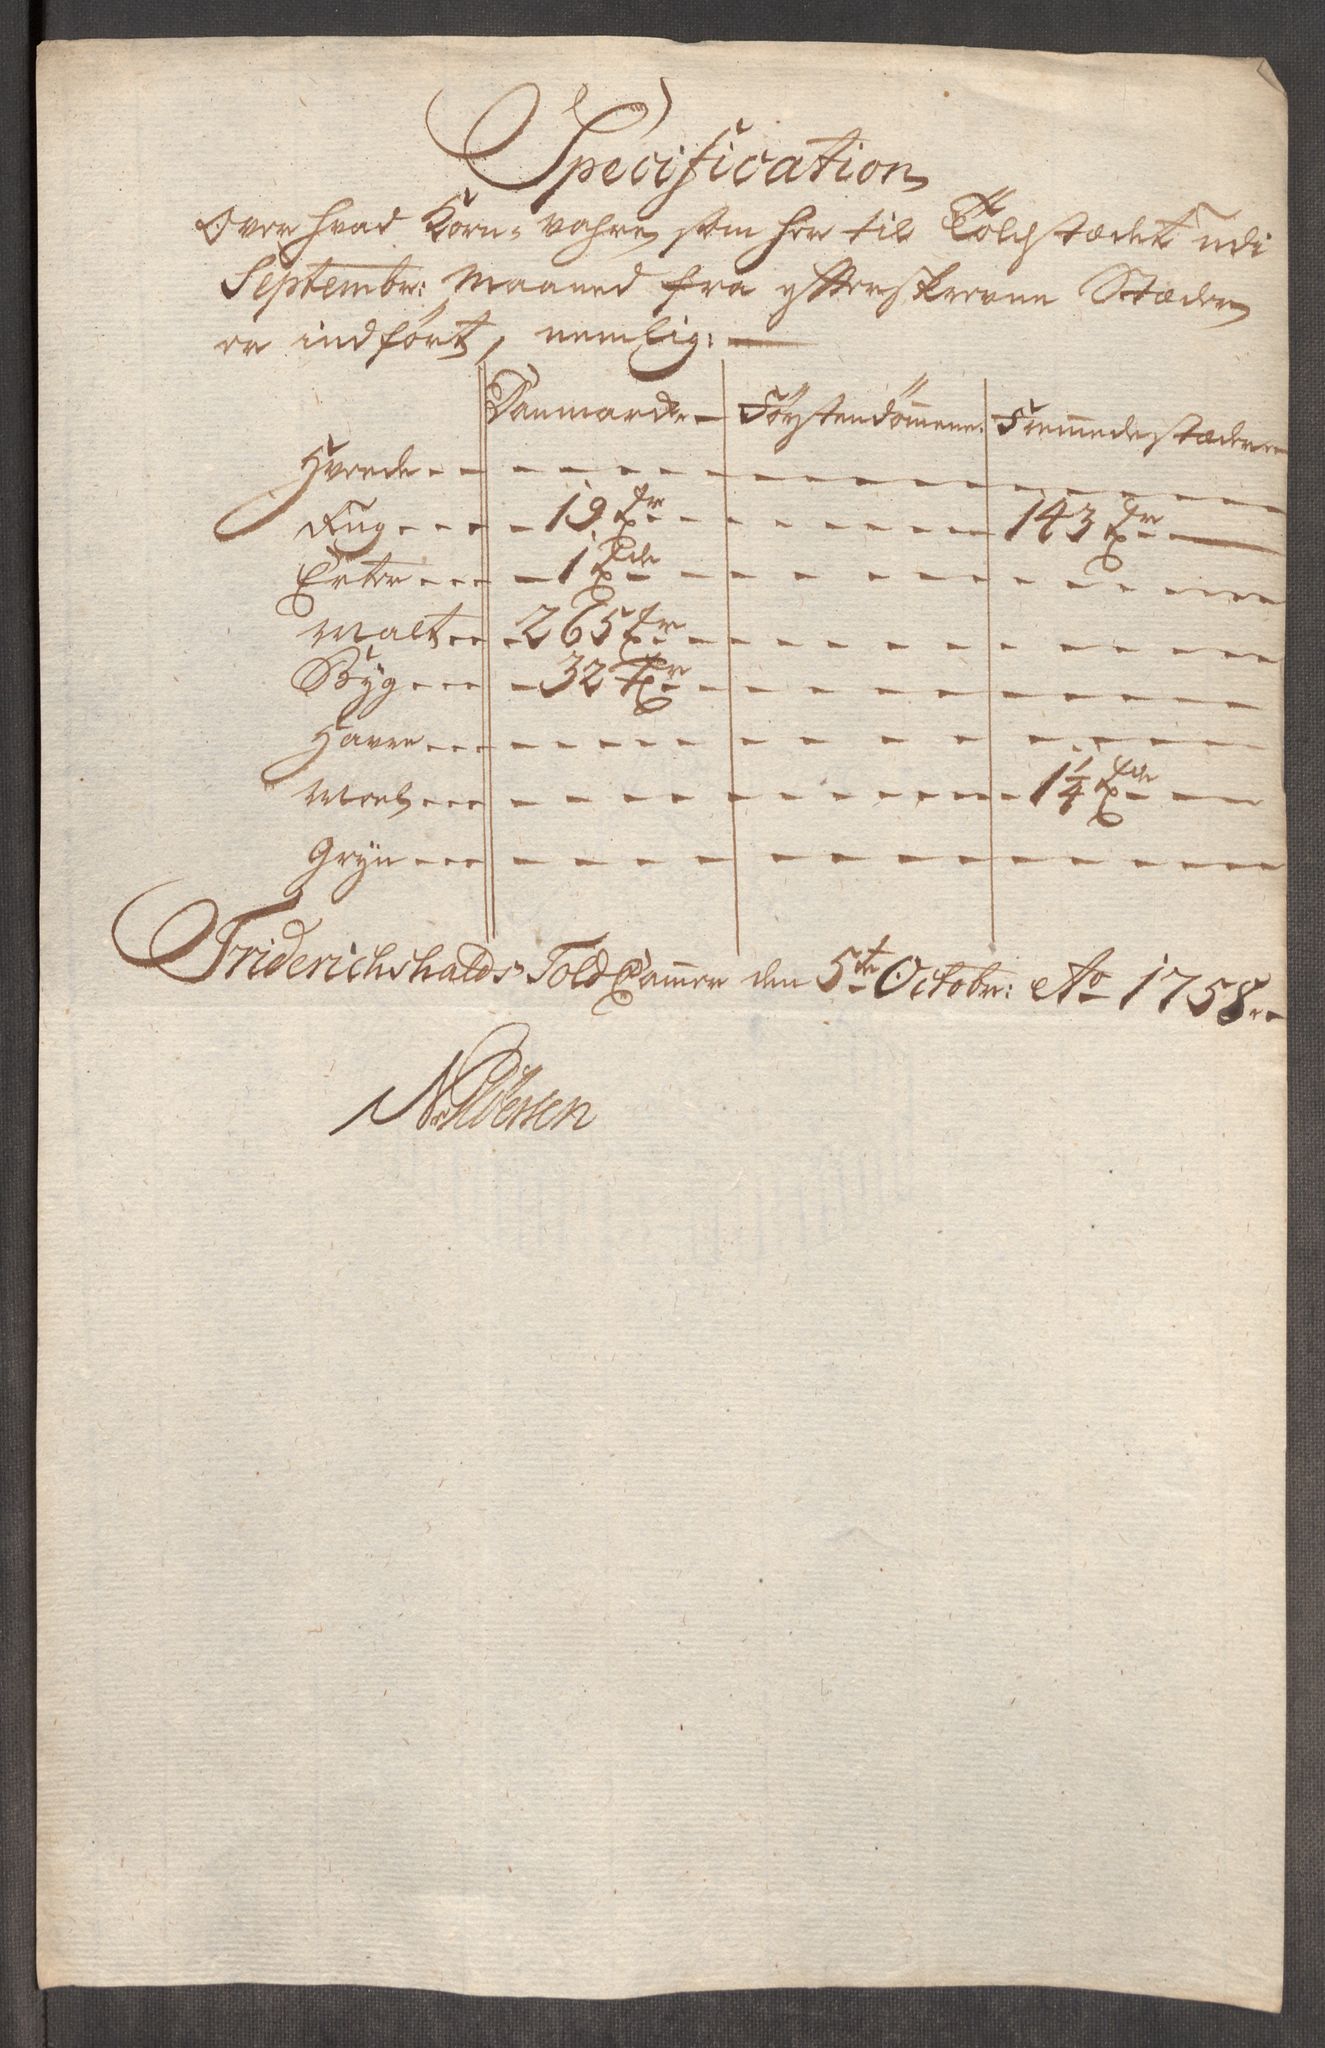 Specification
Over hvad Korn-vahre, som her til Toldstædet udi
Septembr: Maaned fra efterskrevne Stæder
er indført, nemlig:
Danmark Førstendømmene Fremmede stæder
Hvede
Rug 19 Tr 143 Tr
Erter 1 Tde
Malt 265 Tr
Byg 32 Tr
Havre
Meel 1 1/4 Tde
Gryn
Friderichshalds Told Cammer den 5te Octobr: Ao 1758